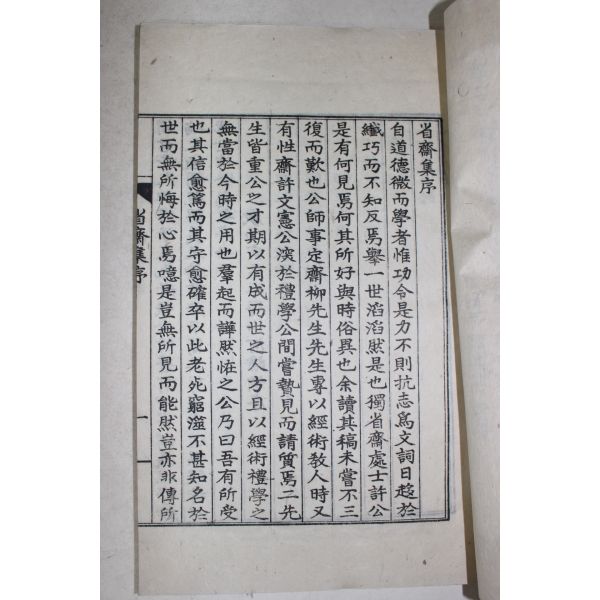 省齋集序
自道德微而學者惟功令是力不則抗志爲文詞日趍於
纖巧而不知反焉擧一世滔滔然是也獨省齋處士許公
是有何見焉何其所好與時俗異也余讀其稿未嘗不三
復而歎也公師事定齋柳先生先生專以經術敎人時又
有性齋許文憲公深於禮學公間嘗贄見而請質焉二先
生皆重公之才期以有成而世之人方且以經術禮學之
無當於今時之用也羣起而譁然恠之公乃曰吾有所受
也其信愈篤而其守愈確卒以此老死窮澨不甚知名於
世而無所悔於心焉噫是豈無所見而能然豈亦非傳所
省齋集序
一